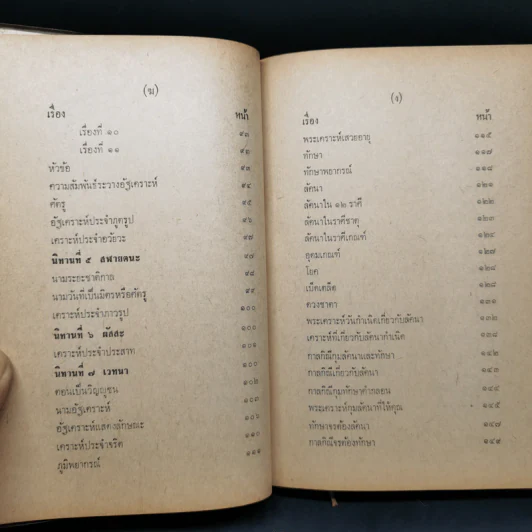 (ฆ)
เรื่อง หน้า
เรื่องที่ ๑๐ ๙๓
เรื่องที่ ๑๑ ๙๓
หัวข้อ
ความสัมพันธ์ระวางอัฐเคราะห์ ๙๔
ศัตรู ๙๕
อัฐเคราะห์ประจำภูตรูป ๙๖
เคราะห์ประจำอวัยวะ ๙๗
นิทานที่ ๕ สฬายตนะ ๙๗
นามระยะชาติกาล ๙๘
นามวันที่เป็นมิตรหรือศัตรู ๙๙
เคราะห์ประจำภาวรูป ๑๐๐
นิทานที่ ๖ ผัสสะ ๑๐๐
เคราะห์ประจำประสาท ๑๐๑
นิทานที่ ๗ เวทนา ๑๐๐
ตอนเป็นวิญญูชน ๑๐๒
นามอัฐเคราะห์ ๑๐๓
อัฐเคราะห์แสดงลักษณะ ๑๐๖
เคราะห์ประจำจริต ๑๑๐
ภูมิพยากรณ์ ๑๑๑
(ง)
เรื่อง หน้า
พระเคราะห์เสวยอายุ ๑๑๕
ทักษา ๑๑๗
ทักษาพยากรณ์ ๑๑๘
ลัคนา ๑๒๑
ลัคนาใน ๑๒ ราศี ๑๒๒
ลัคนาในราศีธาตุ ๑๒๓
ลัคนาในราศีเกณฑ์ ๑๒๔
อุดมเกณฑ์ ๑๒๗
โยค ๑๒๘
เบ็ดเตล็ด ๑๒๘
ดวงชาตา ๑๓๑
พระเคราะห์วันกำเนิดเกี่ยวกับลัคนา ๑๓๒
เคราะห์ที่เกี่ยวกับลัคนากำเนิด ๑๓๘
กาลกิณีกุมลัคนาและทักษา ๑๔๒
กาลกิณีเกี่ยวกับลัคนา
กาลกิณีกุมทักษาทำคลอน
พระเคราะห์กุมลัคนาที่ให้คุณ ๑๔๕
ทักษาจรต้องลัคนา ๑๔๗
กาลกิณีจรต้องทักษา ๑๔๙